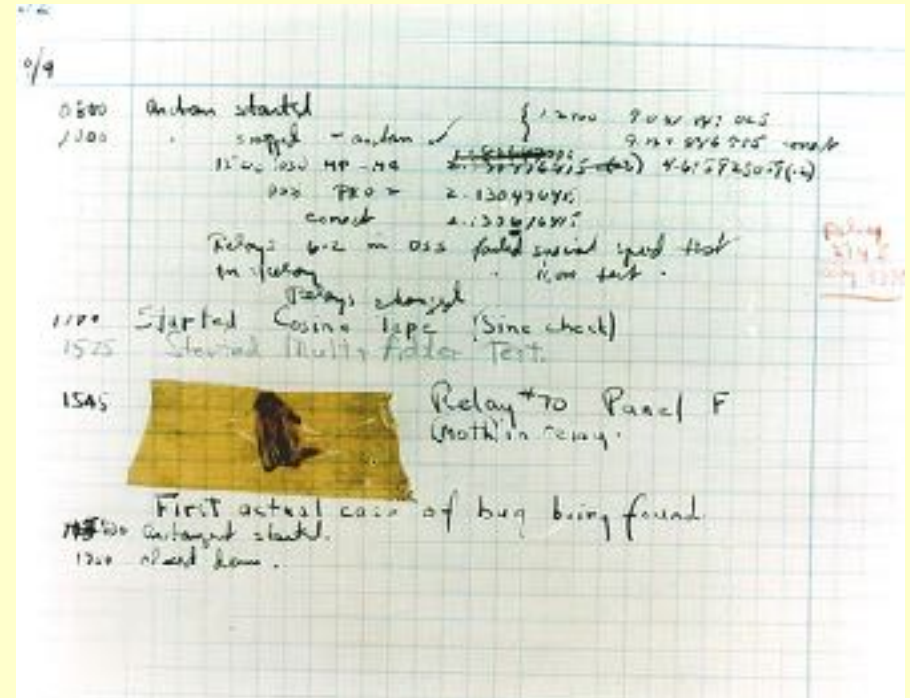 9/9
0800 antan started
1000 " stopped - antan ✓ { 1.2700 9.037 847 025
9.037 846 995 correct
13"uc (032) MP - MC 4.615925059(-2)
(033) PRO 2 2.130476415
correct 2.130676415
Relays 6-2 in 033 failed special speed test
in relay
Relays changed
1100 Started Cosine Tape (Sine check)
1525 Started Multi Adder Test.
1545 Relay #70 Panel F
(Moth) in relay.
First actual case of bug being found.
antangent started.
1700 closed down.